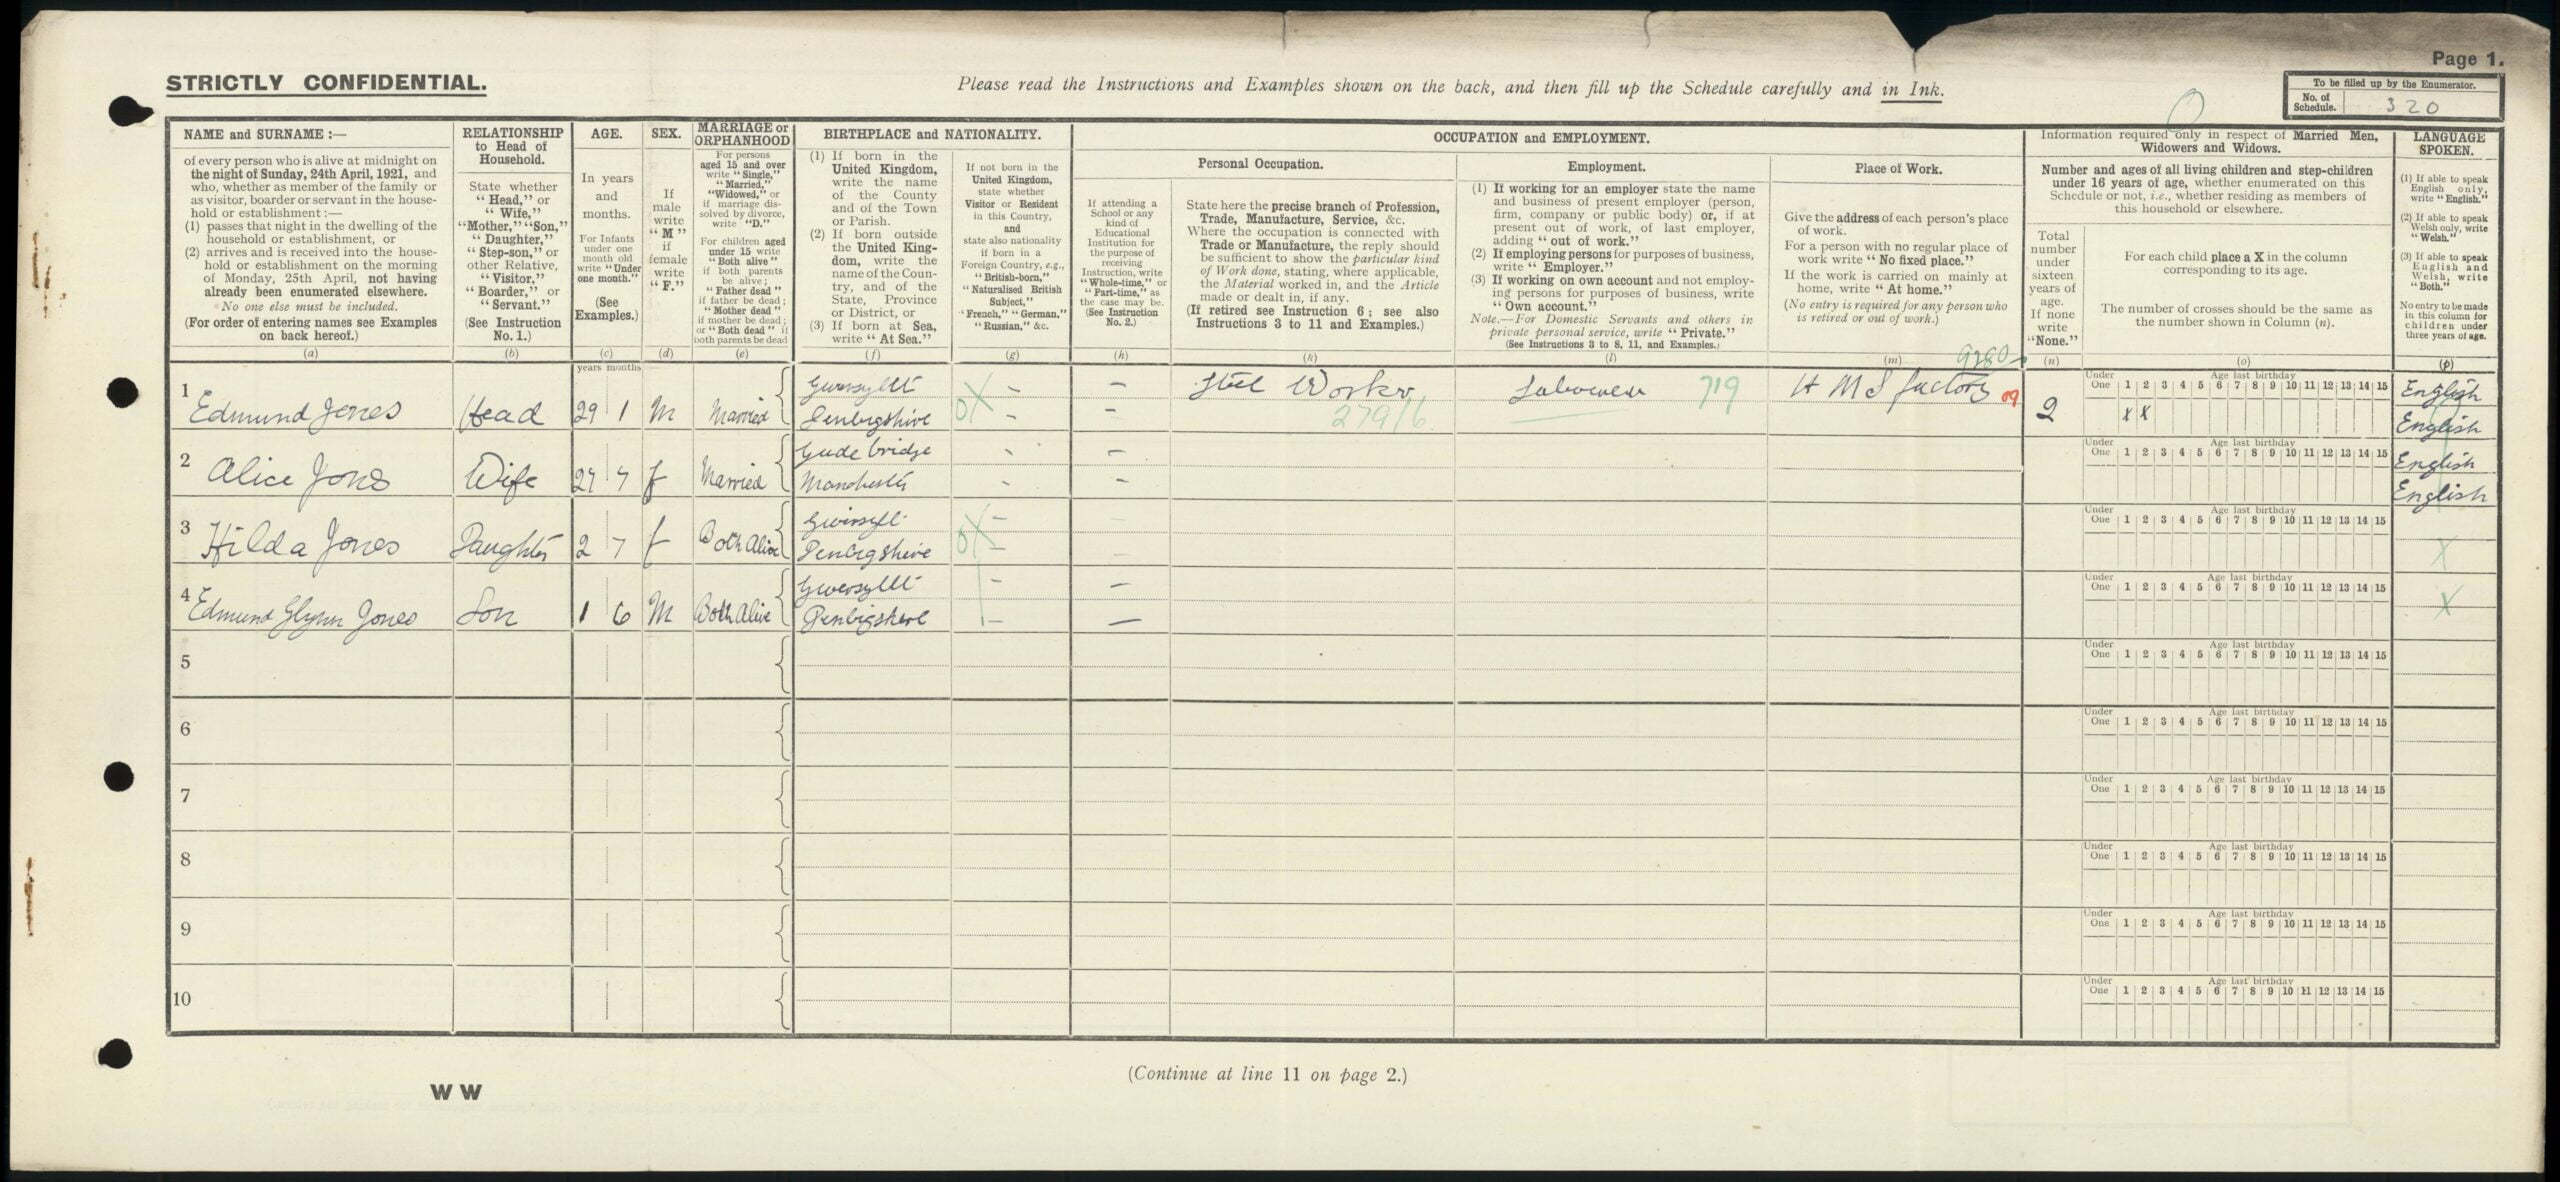 Page 1.
STRICTLY CONFIDENTIAL.
Please read the Instructions and Examples shown on the back, and then fill up the Schedule carefully and in Ink.
To be filled up by the Enumerator.
No. of Schedule. 320
NAME and SURNAME :—
of every person who is alive at midnight on
the night of Sunday, 24th April, 1921, and
who, whether as member of the family or
as visitor, boarder or servant in the house-
hold or establishment :—
(1) passes that night in the dwelling of the
household or establishment, or
(2) arrives and is received into the house-
hold or establishment on the morning
of Monday, 25th April, not having
already been enumerated elsewhere.
No one else must be included.
(For order of entering names see Examples
on back hereof.)
(a)
RELATIONSHIP
to Head of
Household.
State whether
"Head," or
"Wife,"
"Mother," "Son,"
"Daughter,"
"Step-son," or
other Relative,
"Visitor,"
"Boarder," or
"Servant."
(See Instruction
No. 1.)
(b)
AGE.
In years
and
months.
For Infants
under one
month old
write "Under
one month."
(See
Examples.)
(c)
years months
SEX.
If
male
write
"M"
if
female
write
"F."
(d)
MARRIAGE or
ORPHANHOOD
For persons
aged 15 and over
write "Single,"
"Married,"
"Widowed," or
if marriage dis-
solved by divorce,
write "D."
For children aged
under 15 write
"Both alive"
if both parents
be alive;
"Father dead"
if father be dead;
"Mother dead"
if mother be dead;
or "Both dead" if
both parents be dead
(e)
BIRTHPLACE and NATIONALITY.
(1) If born in the
United Kingdom,
write the name
of the County
and of the Town
or Parish.
(2) If born outside
the United King-
dom, write the
name of the Coun-
try, and of the
State, Province
or District, or
(3) If born at Sea,
write "At Sea."
(f)
If not born in the
United Kingdom,
state whether
Visitor or Resident
in this Country,
and
state also nationality
if born in a
Foreign Country, e.g.,
"British-born,"
"Naturalised British
Subject,"
"French," "German,"
"Russian," &c.
(g)
OCCUPATION and EMPLOYMENT.
If attending a
School or any
kind of
Educational
Institution for
the purpose of
receiving
Instruction, write
"Whole-time," or
"Part-time," as
the case may be.
(See Instruction
No. 2.)
(h)
Personal Occupation.
State here the precise branch of Profession,
Trade, Manufacture, Service, &c.
Where the occupation is connected with
Trade or Manufacture, the reply should
be sufficient to show the particular kind
of Work done, stating, where applicable,
the Material worked in, and the Article
made or dealt in, if any.
(If retired see Instruction 6; see also
Instructions 3 to 11 and Examples.)
(k)
Employment.
(1) If working for an employer state the name
and business of present employer (person,
firm, company or public body) or, if at
present out of work, of last employer,
adding "out of work."
(2) If employing persons for purposes of business,
write "Employer."
(3) If working on own account and not employ-
ing persons for purposes of business, write
"Own account."
Note.—For Domestic Servants and others in
private personal service, write "Private."
(See Instructions 3 to 8, 11, and Examples.)
(l)
Place of Work.
Give the address of each person's place
of work.
For a person with no regular place of
work write "No fixed place."
If the work is carried on mainly at
home, write "At home."
(No entry is required for any person who
is retired or out of work.)
(m)
Information required only in respect of Married Men,
Widowers and Widows.
Number and ages of all living children and step-children
under 16 years of age, whether enumerated on this
Schedule or not, i.e., whether residing as members of
this household or elsewhere.
Total
number
under
sixteen
years of
age.
If none
write
"None."
(n)
For each child place a X in the column
corresponding to its age.
The number of crosses should be the same as
the number shown in Column (n).
(o)
LANGUAGE
SPOKEN.
(1) If able to speak
English only,
write "English."
(2) If able to speak
Welsh only, write
"Welsh."
(3) If able to speak
English and
Welsh, write
"Both."
No entry to be made
in this column for
children under
three years of age.
(p)
1 Edmund Jones Head 29 1 M Married Gwersyllt Denbigshire - - Steel Worker 279/6 Labourer 719 H M S factory 9280 09 2 x x English English
Under One 1 2 3 4 5 6 7 8 9 10 11 12 13 14 15 Age last birthday
2 Alice Jones Wife 27 7 f Married Guide bridge Manchester - - English English
Under One 1 2 3 4 5 6 7 8 9 10 11 12 13 14 15 Age last birthday
3 Hilda Jones Daughter 2 7 f Both Alive Gwersyllt Denbigshire - X
Under One 1 2 3 4 5 6 7 8 9 10 11 12 13 14 15 Age last birthday
4 Edmund Glynn Jones Son 1 6 M Both Alive Gwersyllt Denbigshire - - X
Under One 1 2 3 4 5 6 7 8 9 10 11 12 13 14 15 Age last birthday
5
Under One 1 2 3 4 5 6 7 8 9 10 11 12 13 14 15 Age last birthday
6
Under One 1 2 3 4 5 6 7 8 9 10 11 12 13 14 15 Age last birthday
7
Under One 1 2 3 4 5 6 7 8 9 10 11 12 13 14 15 Age last birthday
8
Under One 1 2 3 4 5 6 7 8 9 10 11 12 13 14 15 Age last birthday
9
Under One 1 2 3 4 5 6 7 8 9 10 11 12 13 14 15 Age last birthday
10
Under One 1 2 3 4 5 6 7 8 9 10 11 12 13 14 15 Age last birthday
(Continue at line 11 on page 2.)
W W